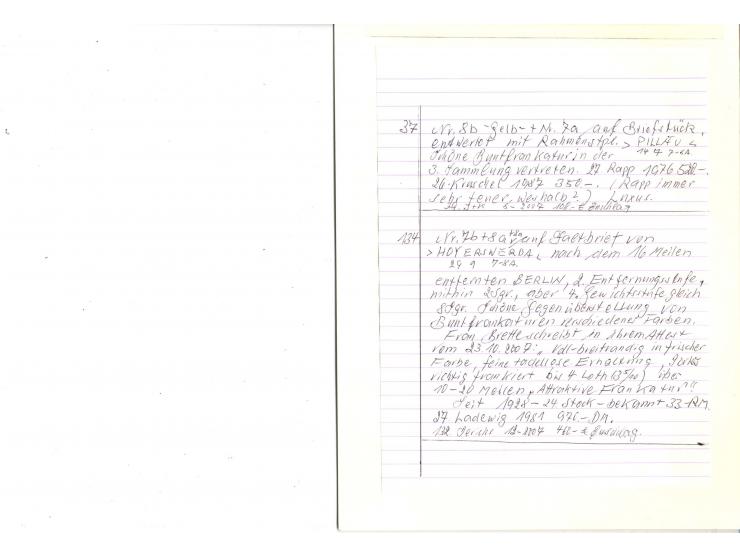 37 Nr. 8b -Gelb- + Nr. 7a auf Briefstück,
entwertet mit Rahmenstpl. > PILLAU <
14 7 7-8A
Schöne Buntfrankatur in der
3. Sammlung vertreten. 27 Rapp 1976
26. Kruschel 1987 350.- (Rapp immer
sehr teuer, weshalb?) Luxus.
2007 Zuschlag
134 Nr. 7b + 8a auf Faltbrief von
> HOYERSWERDA < nach dem 16 Meilen
29 9 7-8A
entfernten BERLIN, 2. Entfernungsstufe,
mithin 2Sgr., aber 4. Gewichtsstufe gleich
8Sgr. Schöne Gegenüberstellung von
Buntfrankaturen verschiedener Farben.
Frau Brettl schreibt in ihrem Attest
vom 23.10.2007: „Voll-breitrandig in frischer
Farbe, feine tadellose Erhaltung,
richtig frankiert bis 4 Loth über
10-20 Meilen, „Attraktive Frankatur"
Seit 1928 - 24 Stück - bekannt 33-RM.
27 Ladewig 1981 976.-DM.
12-2007 Zuschlag.